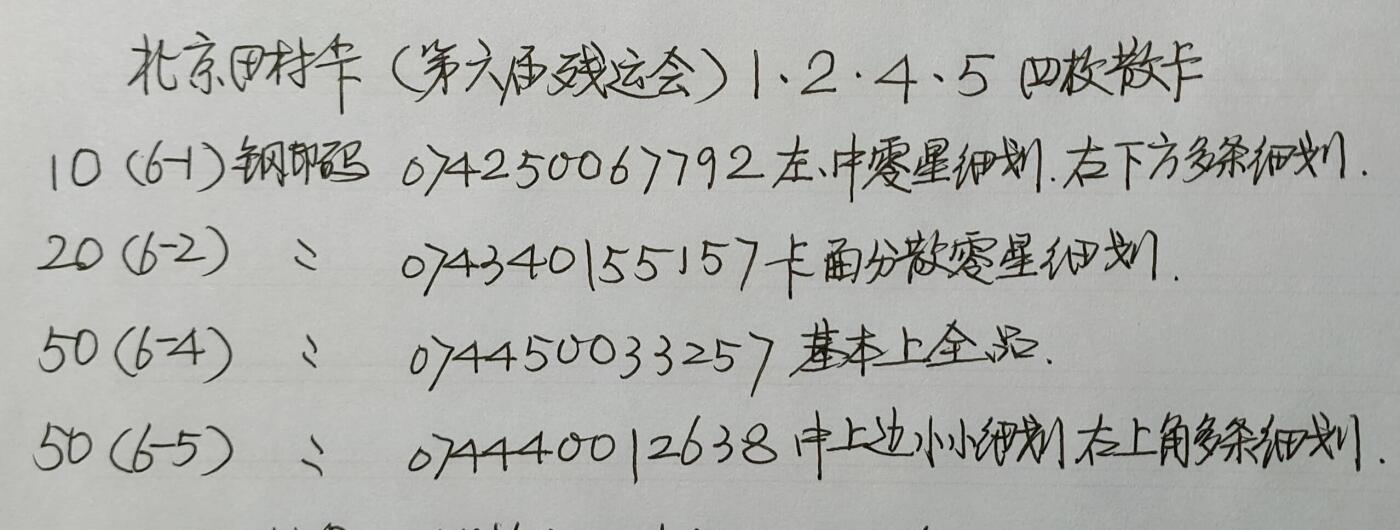 北京田村卡（第六届残运会）1·2·4、5 四枚散卡
10（6-1）钢印码 074250067792 左、中零星细划. 右下方多条细划.
20（6-2） 〃 074340155157 卡面分散零星细划.
50（6-4） 〃 074450033257 基本上全品.
50（6-5） 〃 074440012638 中上边小小细划 右上角多条细划.